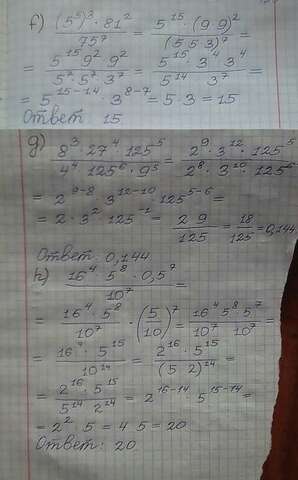 f) \frac{(5^5)^3 \cdot 81^2}{75^7} = \frac{5^{15} \cdot (9 9)^2}{(5 5 3)^7} =
= \frac{5^{15} 9^2 9^2}{5^7 \cdot 5^7 \cdot 3^7} = \frac{5^{15} \cdot 3^4 3^4}{5^{14} 3^7} =
= 5^{15-14} \cdot 3^{8-7} = 5 \cdot 3 = 15
Ответ 15
g) \frac{8^3 \cdot 27^4 \cdot 125^5}{4^4 \cdot 125^6 \cdot 9^5} = \frac{2^9 \cdot 3^{12} \cdot 125^5}{2^8 \cdot 3^{10} \cdot 125^6}
= 2^{9-8} 3^{12-10} \cdot 125^{5-6} =
= 2 \cdot 3^2 \cdot 125^{-1} = \frac{2 9}{125} = \frac{18}{125} = 0,144
Ответ: 0,144.
h) \frac{16^4 \cdot 5^8 \cdot 0,5^7}{10^7} =
= \frac{16^4 \cdot 5^8}{10^7} \cdot \left(\frac{5}{10}\right)^7 = \frac{16^4 5^8 5^7}{10^7 10^7} =
= \frac{16^4 \cdot 5^{15}}{10^{14}} = \frac{2^{16} \cdot 5^{15}}{(5 2)^{14}} =
= \frac{2^{16} \cdot 5^{15}}{5^{14} 2^{14}} = 2^{16-14} 5^{15-14} =
= 2^2 5 = 4 5 = 20
Ответ: 20.